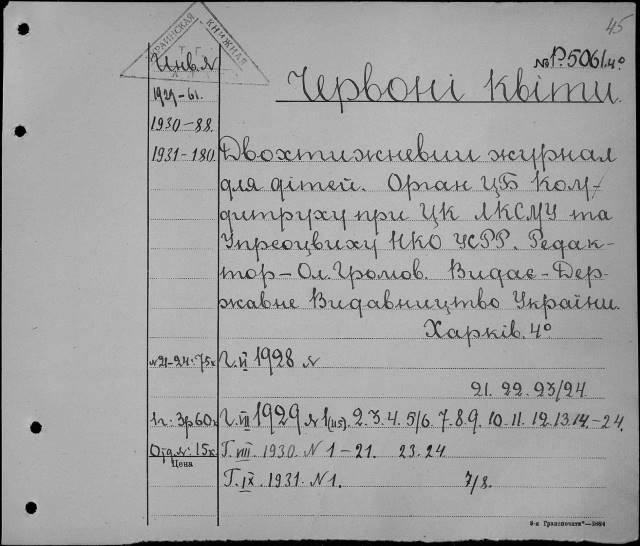 45
УКРАИНСКАЯ КНИЖНАЯ
№ Р. 5061. 4º
Инв. №
Червоні Квіти.
1929-61.
1930-88.
1931-180.
Двохтижневий журнал
для дітей. Орган ЦБ Ком-
дитруху при ЦК ЛКСМУ та
Упрсоцвиху НКО УСРР. Редак-
тор - Ол. Громов. Видає - Дер-
жавне Видавництво України.
Харків. 4º
№21-24: 75к Г. VI 1928 №
21. 22. 23/24
1г. 3р60к Г. VII 1929 № 1(115). 2. 3. 4. 5/6. 7. 8. 9. 10. 11. 12. 13. 14. - 24.
Отд. №. 15к Г. VIII. 1930. N 1-21. 23. 24
Цена
Г. IX. 1931. N 1. 7/8.
8-я Гранпечати"—3864